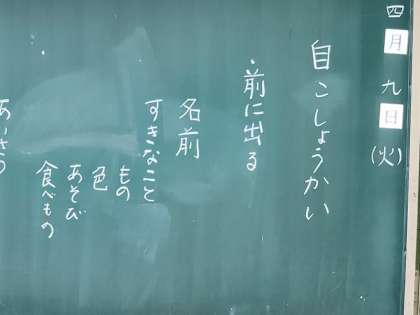 四月九日(火)
自こしょうかい
・前に出る
名前
すきなこと
もの
色
あそび
食べもの
あいさつ